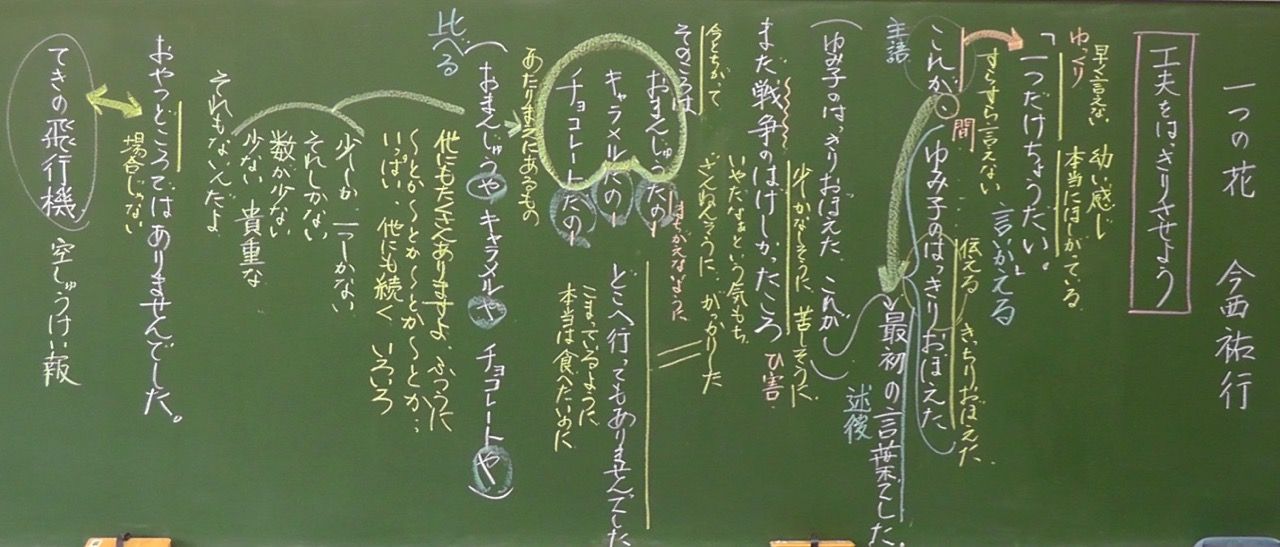 一つの花　今西祐行
工夫をはっきりさせよう
早く言えない　幼い感じ
ゆっくり　本当にほしがっている
「一つだけちょうだい。」
すらすら言えない　言いかえる
間
伝える　きっちりおぼえた
これが、ゆみ子のはっきりおぼえた
主語
最初の言葉でした。
述語
（ゆみ子のはっきりおぼえた これが）
少しかなしそうに 苦しそうに
まだ戦争のはげしかったころ　ひ害
いやだなぁという気もち
ざんねんそうに、がっかりした
今とちがって
そのころは
おまんじゅうだの
キャラメルだの
チョコレートだの
どこへ行ってもありませんでした
こまっているように
本当は食べたいのに
あたりまえにあるもの
比べる
（おまんじゅうや キャラメルや チョコレートや）
他にもたくさんありますよ、ふつうに
〜とか〜とか〜とか〜とか‥
いっぱい、他にも続く、いろいろ
少しか 一つしかない
それしかない
数が少ない
少ない 貴重な
それもないんだよ
おやつどころではありませんでした。
場合じゃない
てきの飛行機　空しゅうけい報